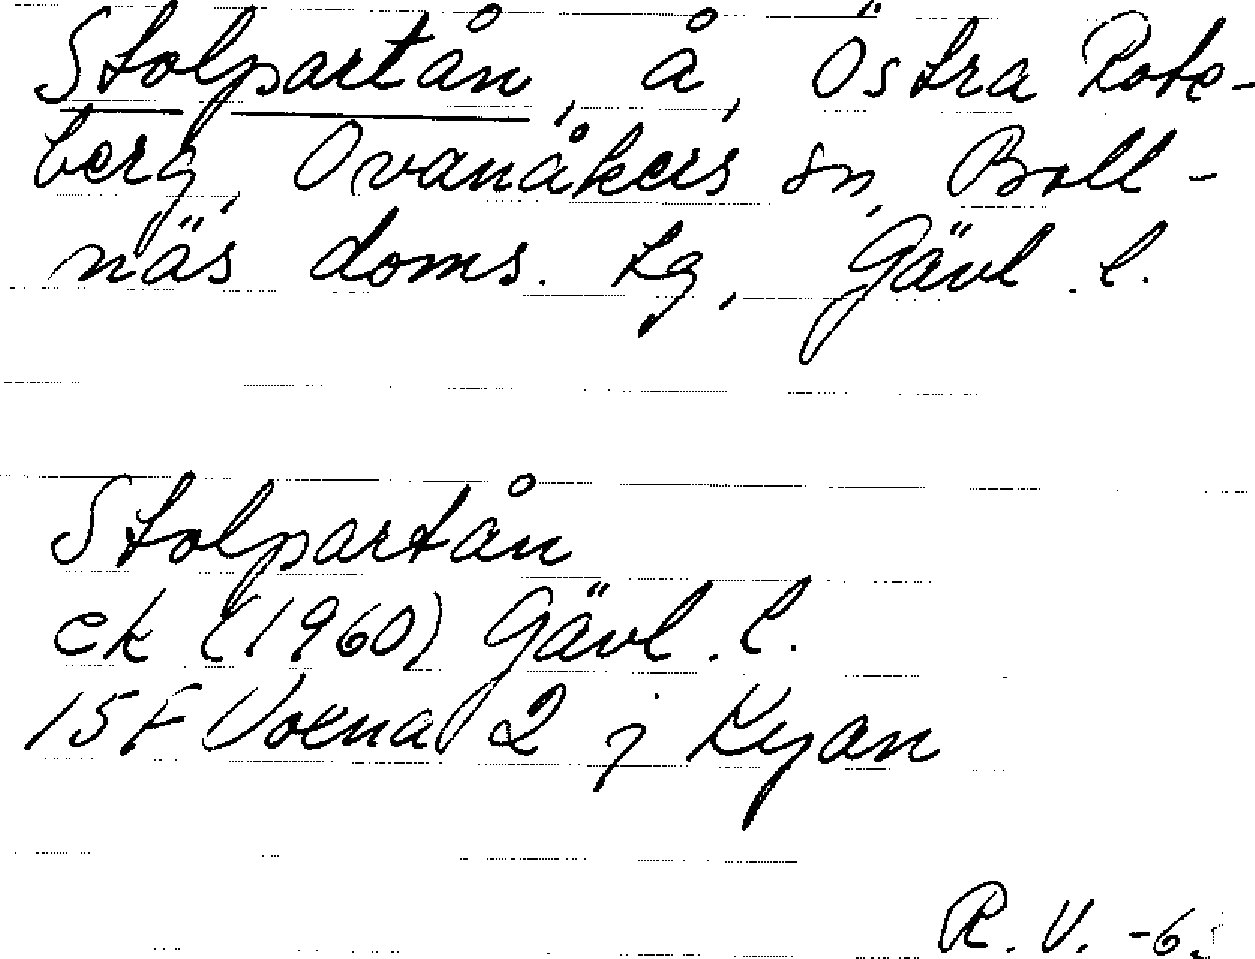 Stolpartån, å, Östra Rote-
berg, Ovanåkers sn, Boll-
näs doms. tg, Gävl. l.
Stolpartån
ek (1960) Gävl. l.
15F Voxna 2 j Kyan
R. V. -6